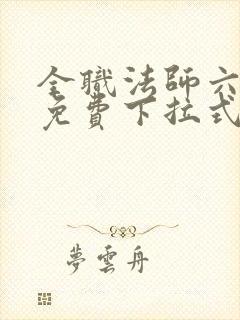 全職法師六
免費下拉式
夢雲舟